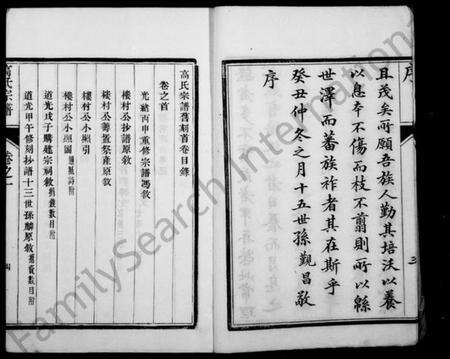 序
且茂矣所願吾族人勤其培沃以養
以息本不傷而枝不翦則所以緜
世澤而蕃族祚者其在斯乎
癸丑仲冬之月十五世孫觀昌敬
序
三
高氏宗譜舊刻首卷目錄
卷之首
光緒丙申重修宗譜馮敘
樓村公抄譜原敘
樓村公善置祭產原敘
樓村公小照引
樓村公小照圖
道光戊子購建宗祠敘
道光甲午修刻抄譜十三世孫麟原敘
高氏宗譜
卷之一
四
FamilySearch International